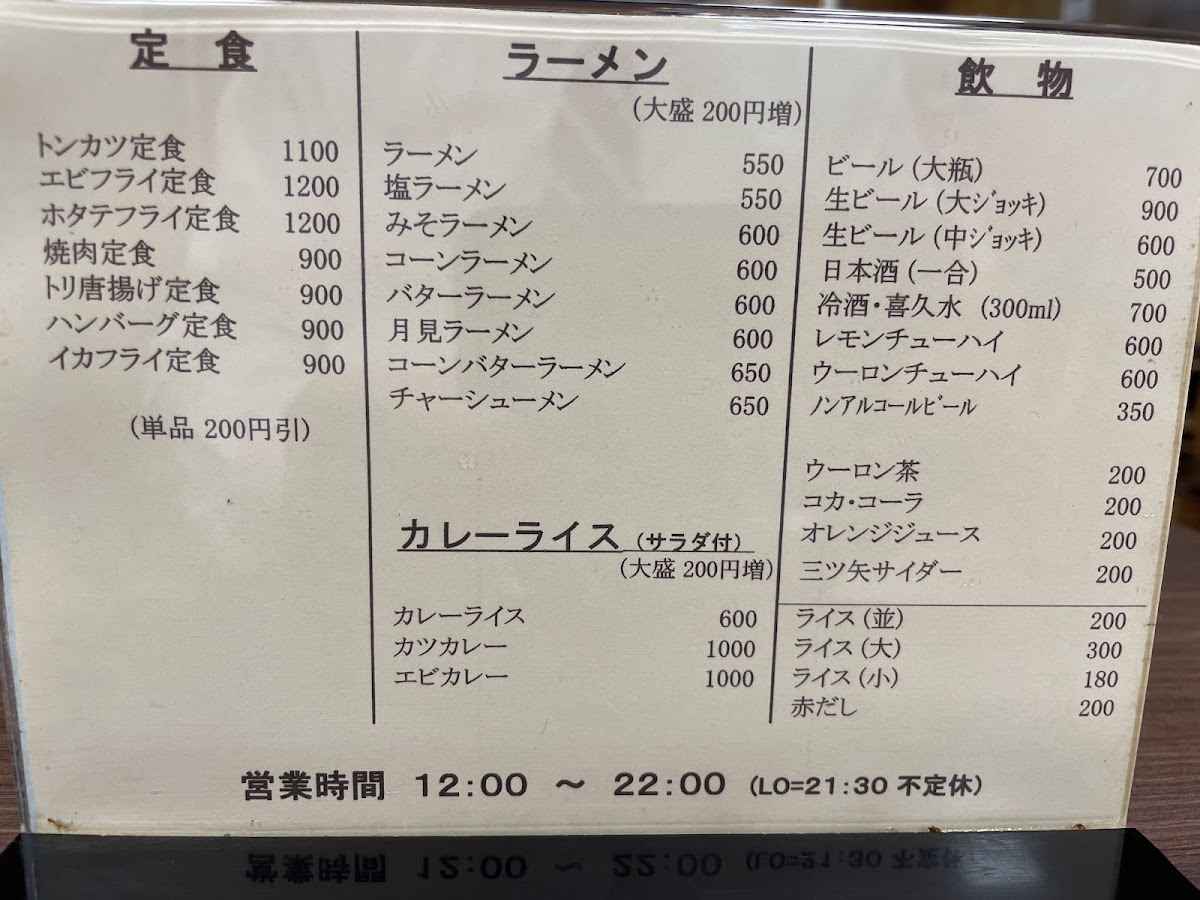 定　食
トンカツ定食 1100
エビフライ定食 1200
ホタテフライ定食 1200
焼肉定食 900
トリ唐揚げ定食 900
ハンバーグ定食 900
イカフライ定食 900
(単品 200円引)
ラーメン
(大盛 200円増)
ラーメン 550
塩ラーメン 550
みそラーメン 600
コーンラーメン 600
バターラーメン 600
月見ラーメン 600
コーンバターラーメン 650
チャーシューメン 650
カレーライス (サラダ付)
(大盛 200円増)
カレーライス 600
カツカレー 1000
エビカレー 1000
飲　物
ビール (大瓶) 700
生ビール (大ｼﾞｮｯｷ) 900
生ビール (中ｼﾞｮｯｷ) 600
日本酒 (一合) 500
冷酒・喜久水 (300ml) 700
レモンチューハイ 600
ウーロンチューハイ 600
ﾉﾝｱﾙｺｰﾙﾋﾞｰﾙ 350
ウーロン茶 200
コカ・コーラ 200
オレンジジュース 200
三ツ矢サイダー 200
ライス (並) 200
ライス (大) 300
ライス (小) 180
赤だし 200
営業時間 12:00 ～ 22:00 (LO=21:30 不定休)